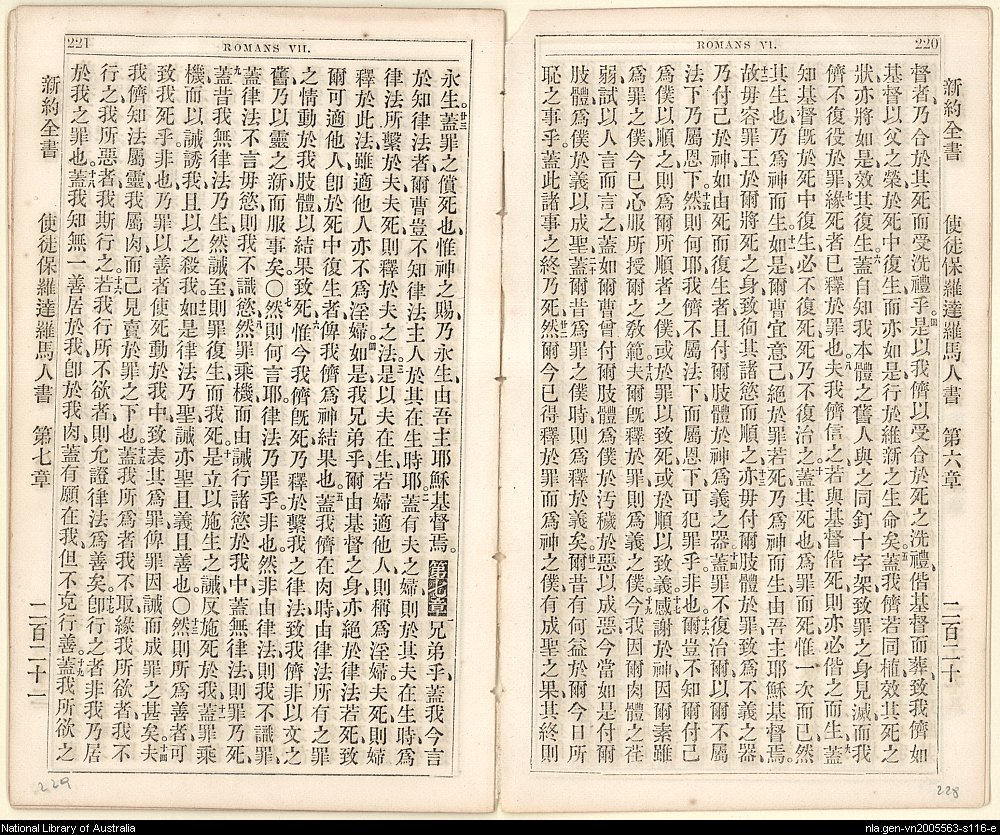 220
ROMANS VI.
新約全書 使徒保羅達羅馬人書 第六章 二百二十
督者、乃合於其死而受洗禮乎。四是以我儕以受合於死之洗禮、偕基督而葬、致我儕如
基督以父之榮於死中復生、而亦如是行於維新之生命矣。五蓋我儕若同植效其死之
狀、亦將如是效其復生。六蓋自知我本體之舊人與之同釘十字架、致罪之身見滅、而我
儕不復役於罪、七緣死者已釋於罪也。八夫我儕信之、若與基督偕死、則亦必偕之而生、九蓋
知基督旣於死中復生、必不復死、死乃不復治之。十蓋其死也、爲罪而死、惟一次而已、然
其生也、乃爲神而生。十一如是爾曹宜意己絕於罪若死、乃爲神而生、由吾主耶穌基督焉。
十二故毋容罪王於爾將死之身、致徇其諸慾而順之、十三亦毋付爾肢體於罪、爲不義之器、
乃付己於神、如由死而復生者、且付爾肢體於神、爲義之器。十四蓋罪不復治爾、以爾不屬
法下、乃屬恩下。十五然則何耶、我儕不屬法下而屬恩下、可犯罪乎、非也。十六爾豈不知爾付己
爲僕以順之、則爲爾所順者之僕、或於罪以致死、或於順以致義。十七感謝於神、因爾素雖
爲罪之僕、今已心服所授爾之敎範。十八夫爾旣釋於罪、則爲義之僕。十九今我因爾肉體之荏
弱、試以人言而言之、蓋如爾曹曾付爾肢體爲僕於污穢於惡以成惡、今當如是付爾
肢體爲僕於義以成聖。二十蓋爾昔爲罪之僕時、則爲釋於義矣。廿一爾昔有何益於爾今日所
恥之事乎、蓋此諸事之終乃死、廿二然爾今已得釋於罪而爲神之僕、有成聖之果、其終則
228
221
ROMANS VII.
永生。廿三蓋罪之償死也、惟神之賜乃永生、由吾主耶穌基督焉。第七章一兄弟乎、蓋我今言
於知律法者、爾曹豈不知律法主人於其在生時耶。二蓋有夫之婦、則於其夫在生時爲
律法所繫於夫、夫死則釋於夫之法。三是以夫在生、若婦適他人、則稱爲淫婦、夫死、則婦
釋於此法、雖適他人、亦不爲淫婦。四如是我兄弟乎、爾由基督之身、亦絕於律法若死、致
爾可適他人、卽於死中復生者、俾我儕爲神結果也。五蓋我儕在肉時、由律法所有之罪
之情、動於我肢體以結果致死。六惟今我儕旣死、乃釋於繫我之律法、致我儕非以文之
舊、乃以靈之新而服事矣。〇七然則何言耶、律法乃罪乎、非也、然非由律法則我不識罪、
蓋律法不言毋慾、則我不識慾。八然罪乘機而由誡行諸慾於我中、蓋無律法則罪乃死、
九蓋昔我無律法乃生、然誡至則罪復生、而我死。十是立以施生之誡、反施死於我。十一蓋罪乘
機而以誡誘我、且以之殺我。十二如是律法乃聖、誡亦聖且義且善也。〇十三然則所爲善者、可
致我死乎、非也、乃罪以善者使死動於我中、致表其爲罪、俾罪因誡而成罪之甚矣。十四夫
我儕知法屬靈、我屬肉、而己見賣於罪之下也。十五蓋我所爲者、我不取、緣我所欲者、我不
行之、我所惡者、我斯行之。十六若我行所不欲者、則允證律法爲善矣。十七卽行之者非我、乃居
於我之罪也。十八蓋我知無一善居於我、卽於我肉、蓋有願在我、但不克行善。十九蓋我所欲之
新約全書 使徒保羅達羅馬人書 第七章 二百二十一
229
National Library of Australia
nla.gen-vn2005563-s116-e